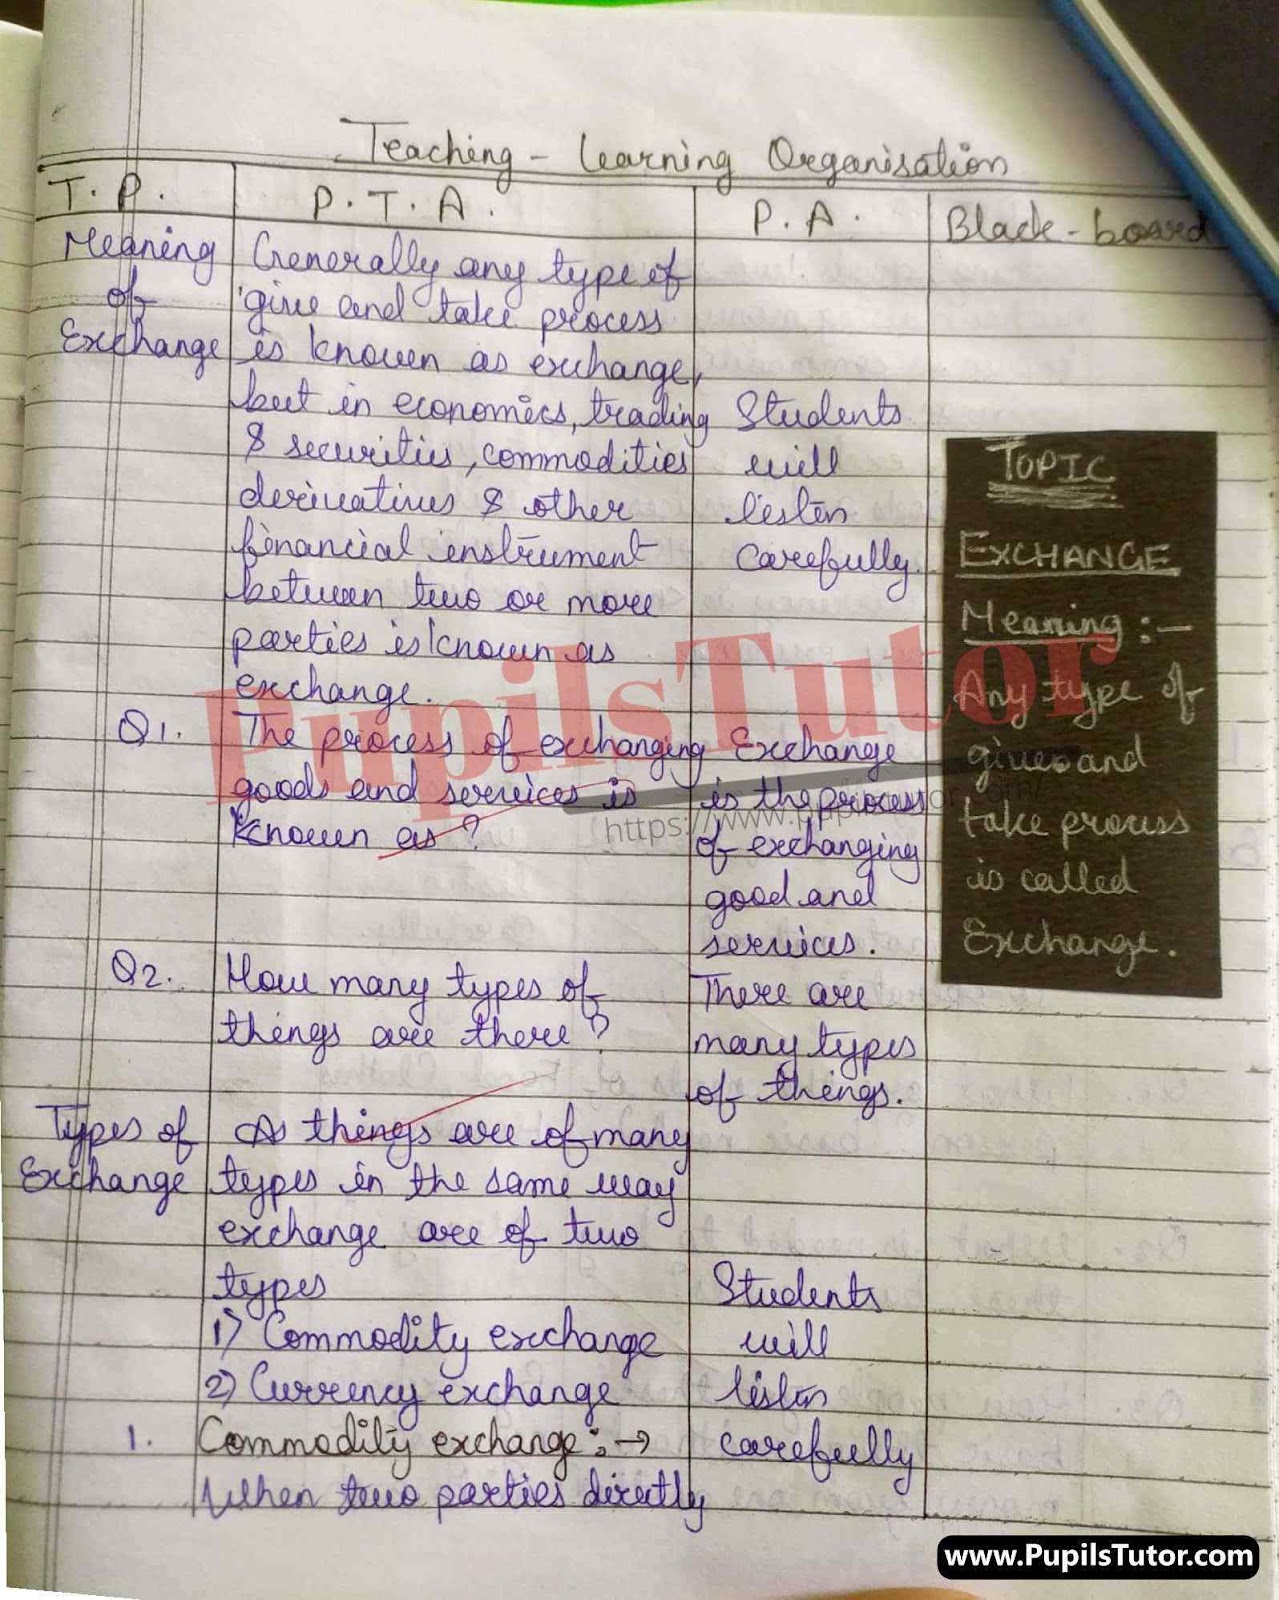 Teaching - Learning Organisation
T. P. P. T. A. P. A. Black-board
Meaning
of
Exchange
Generally any type of
give and take process
is known as exchange,
but in economics, trading
& securities, commodities
derivatives & other
financial instrument
between two or more
parties is known as
exchange.
Students
will
listen
carefully.
TOPIC
EXCHANGE
Meaning :-
Any type of
give and
take process
is called
Exchange.
Q1.
The process of exchanging
goods and services is
known as ?
Exchange
is the process
of exchanging
good and
services.
Q2.
How many types of
things are there ?
There are
many types
of things.
Types of
Exchange
As things are of many
types in the same way
exchange are of two
types
1) Commodity exchange
2) Currency exchange
Students
will
listen
carefully
1.
Commodity exchange :→
When two parties directly
PupilsTutor
https://www.
www.PupilsTutor.com